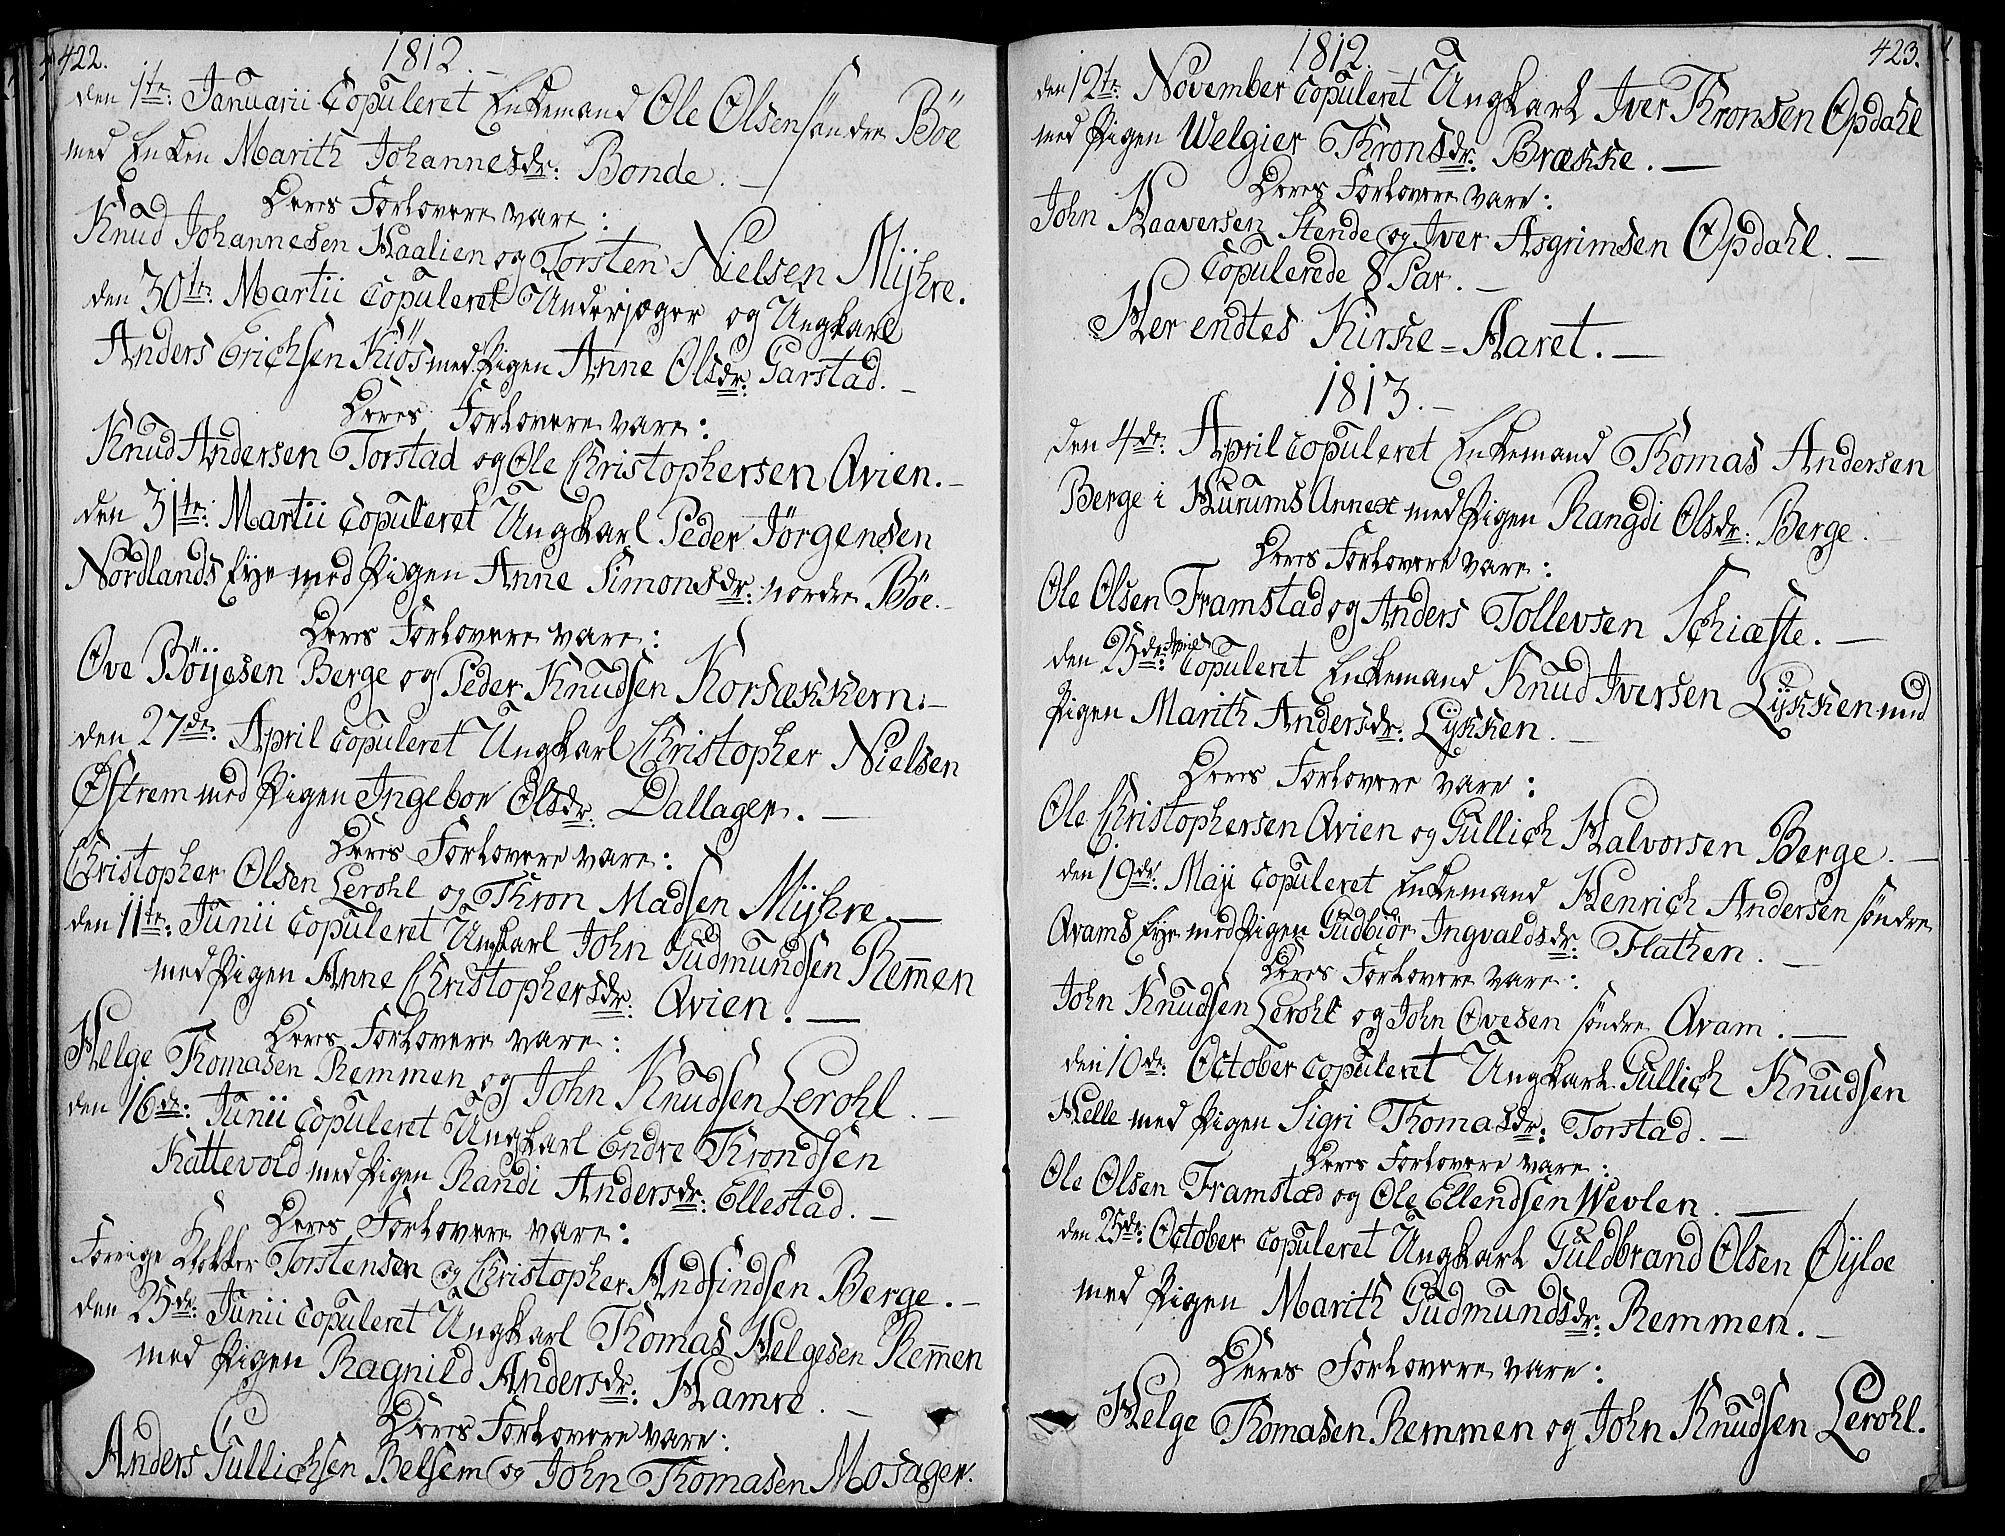 422.
1812.
den 1te: Januarii Copuleret Enkemand Ole Olsen söndre Böe
med Enken Marith Johannesdr: Bonde.
Deres Forlovere vare:
Knud Johannesen Haalien og Torsten Nielsen Mijhre.
den 30te: Martii Copuleret Underjæger og Ungkarl
Anders Erichsen Kiös med Pigen Anne Olsdr: Garstad.
Deres Forlovere vare:
Knud Andersen Torstad og Ole Christophersen Qvien.
den 31te: Martii Copuleret Ungkarl Peder Jörgensen
Nordlands Eye med Pigen Anne Simonsdr: nordre Böe.
Deres Forlovere vare:
Ove Böijesen Berge og Peder Knudsen Korsækkern.
den 27de: April copuleret Ungkarl Christopher Nielsen
Østrem med Pigen Ingebor Olsdr: Dallager.
Deres Forlovere vare:
Christopher Olsen Lerohl og Thron Madsen Mijhre.
den 11te: Junii Copuleret Ungkarl John Gudmundsen Rem̅en
med Pigen Anne Christophersdr: Qvien.
Deres Forlovere vare:
Helge Thomasen Remmen og John Knudsen Lerohl.
den 16de: Junii Copuleret Ungkarl Endre Throndsen
Kattevold med Pigen Randi Andersdr: Ellestad.
Deres Forlovere vare:
Forrige Klokker Torstensen og Christopher Andfindsen Berge.
den 25de: Junii Copuleret Ungkarl Thomas Helgesen Rem̅en
med Pigen Ragnild Andersdr: Hamre.
Deres Forlovere vare:
Anders Gullichsen Belsem og John Thomasen Mosager.
423.
1812.
den 12te: November copuleret Ungkarl Iver Thronsen Opdahl
med Pigen Welgier Thronsdr: Brække.
Deres Forlovere vare:
John Haaversen Stende og Iver Asgrimsen Opdahl.
Copulerede 8 Par.
Her endtes Kirke=Aaret.
1813.
den 4de: April copuleret Enkemand Thomas Andersen
Berge i Hurums Annex med Pigen Rangdi Olsdr: Berge.
Deres Forlovere vare:
Ole Olsen Framstad og Anders Tollevsen Schiæfte.
den 25de: April Copuleret Enkemand Knud Iversen Lykken med
Pigen Marith Andersdr: Lykken.
Deres Forlovere vare:
Ole Christophersen Qvien og Gullich Halvorsen Berge.
den 19de: Maji Copuleret Enkemand Henrich Andersen söndre
Qvams Eye med Pigen Gudbiör Ingvaldsdr: Flathen.
Deres Forlovere vare:
John Knudsen Lerohl og John Ovesen söndre Qvam.
den 10de: October Copuleret Ungkarl Gullich Knudsen
Helle med Pigen Sigri Thomasdr: Torstad.
Deres Forlovere vare:
Ole Olsen Framstad og Ole Ellendsen Wevlen.
den 25de: October copuleret Ungkarl Guldbrand Olsen Øyloe
med Pigen Marith Gudmundsdr: Remmen.
Deres Forlovere vare:
Helge Thomasen Remmen og John Knudsen Lerohl.